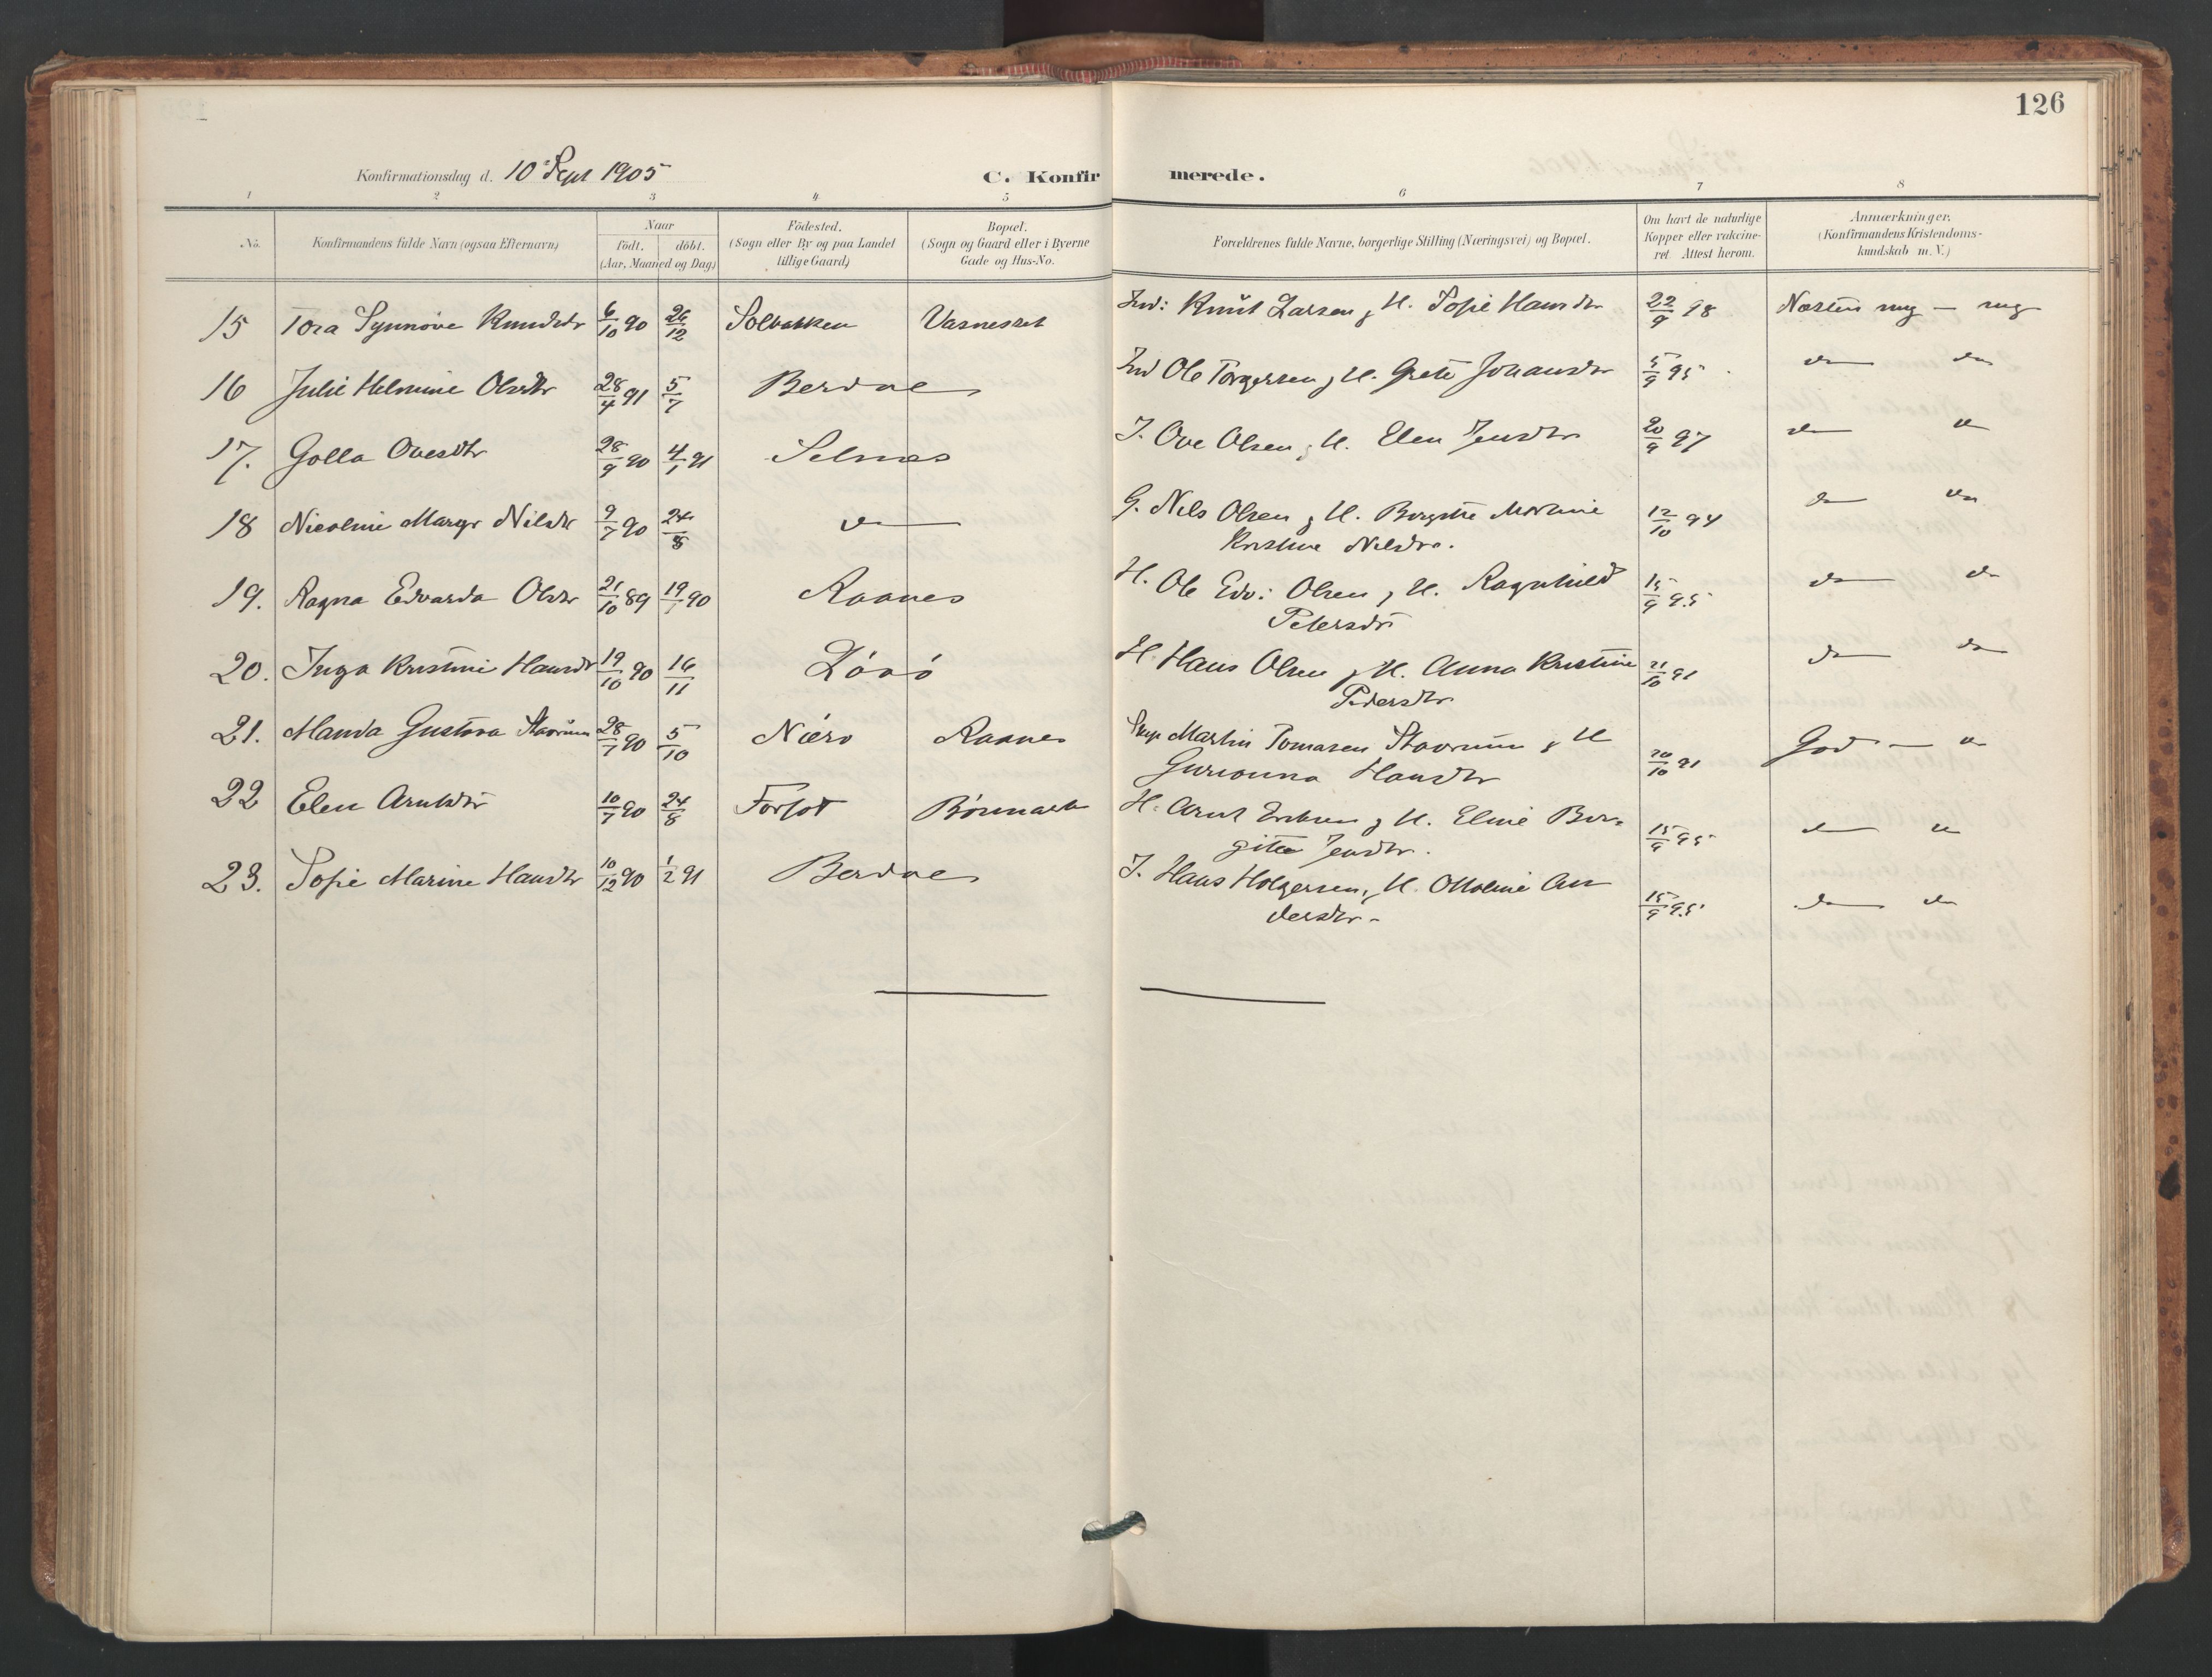 126
Konfirmationsdag d. 10 Sept 1905
C. Konfirmerede.
1 2 3 4 5 6 7 8
No. Konfirmandens fulde Navn (ogsaa Efternavn) Naar födt. döbt. (Aar, Maaned og Dag) Födested. (Sogn eller By og paa Landet tillige Gaard) Bopæl. (Sogn og Gaard eller i Byerne Gade og Hus-No. Forældrenes fulde Navne, borgerlige Stilling (Næringsvei) og Bopæl. Om havt de naturlige Kopper eller vakcineret Attest herom. Anmærkninger. (Konfirmandens Kristendomskundskab m. V.)
15 Tora Synnöve Knudsdr 6/10 90 26/12 Solbakken Vasnesset Ind: Knut Larsen & H. Sofie Hansdr 22/9 98 Næsten mg — mg
16 Julie Helmine Olsdtr 28/4 91 5/7 Berdal Ind Ole Torgersen & H. Grete Johansdr 5/9 95 do do
17. Golla Ovesdtr 28/9 90 4/1 91 Selnes I. Ove Olsen & H. Elen Jensdtr 20/9 97 do do
18 Nicoline Margr Nilsdr 9/7 90 24/8 do G. Nils Olsen & H. Bergitte Martine
Kristine Nilsdr. 12/10 94 do do
19. Ragna Edvarda Olsdr 21/10 89 19/1 90 Raanes H. Ole Edv: Olsen & H. Ragnhild
Petersdr 15/9 95 do do
20. Inga Kristine Hansdr 19/10 90 16/11 Lösö H. Hans Olsen & H. Anna Kristine
Pedersdtr 21/10 91 do do
21. Manda Gustava Stavrum 28/7 90 5/10 Nærö Raanes Martin Tomasen Stavrum & H
Gurianna Hansdtr 20/10 91 God — do
22 Elen Arntsdtr 10/7 90 24/8 Forfot H. Arnt Eriksen & H. Eline Ber-
gitte Jensdtr. 15/9 95 do do
23. Sofie Marine Hansdtr 10/12 90 1/2 91 Berdal I. Hans Holgersen & H. Ottoline An
dersdtr. 15/9 95 do do